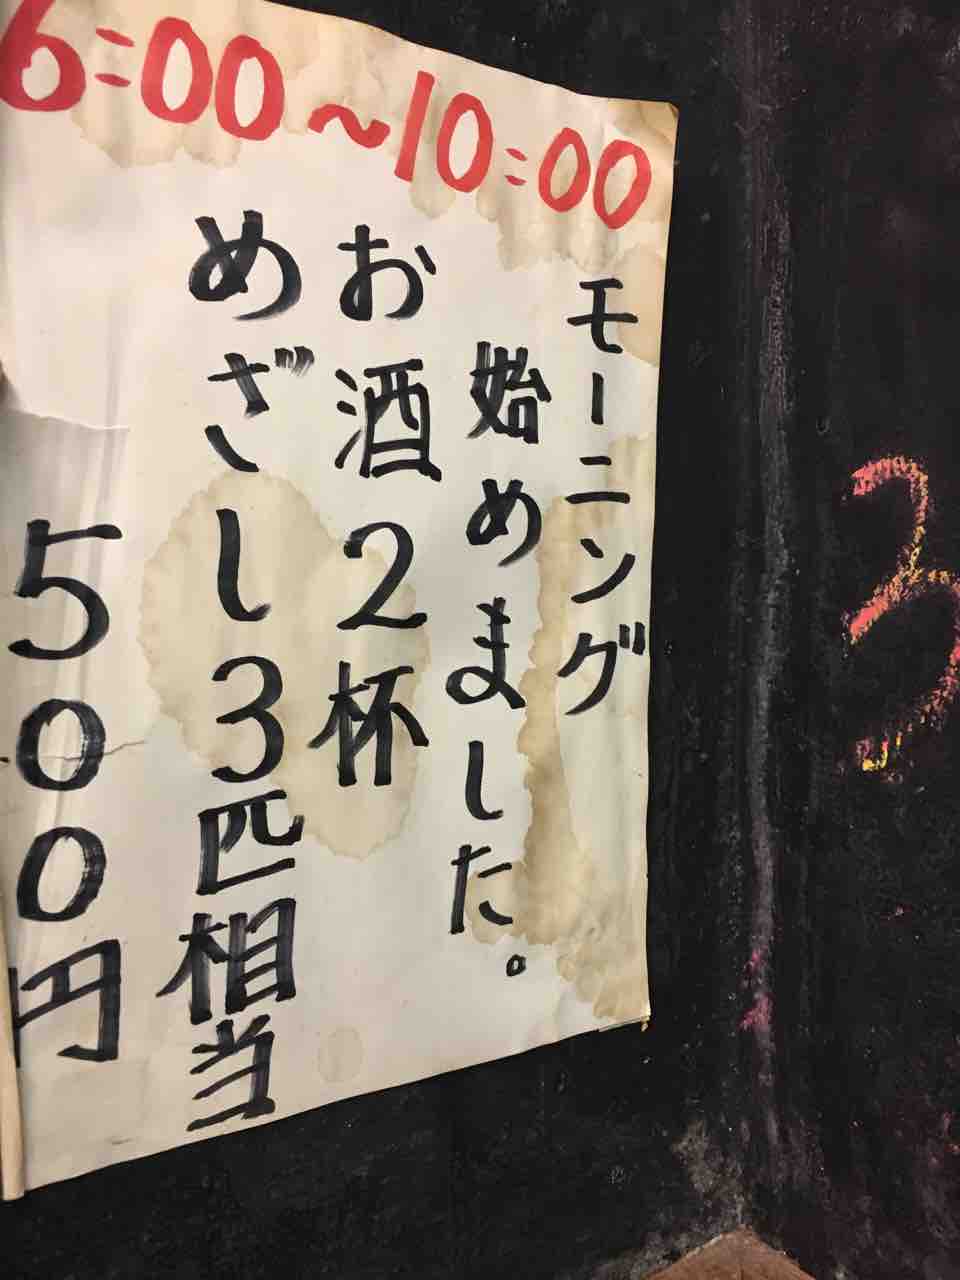 6:00〜10:00
モーニング
始めました。
お酒2杯
めざし3匹相当
500円